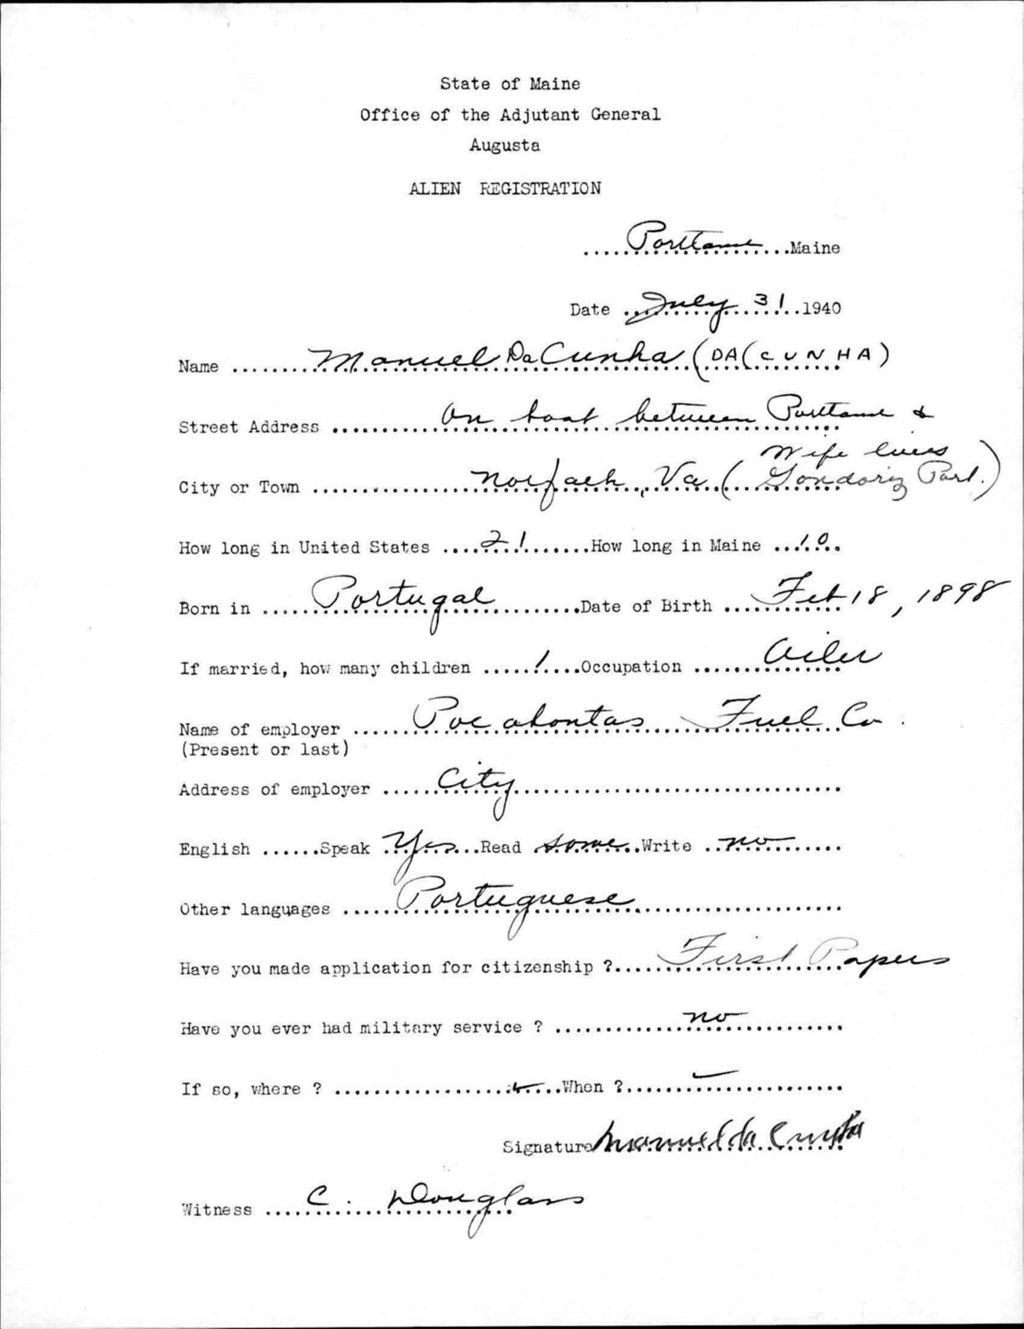 State of Maine
Office of the Adjutant General
Augusta
ALIEN REGISTRATION
.....Portland.....Maine
Date ...July 31...1940
Name ........Manuel DaCunha (DA CUNHA)
Street Address ...........On boat between Portland &
City or Town ...............Norfolk, Va. (Wife lives Gondoriz Port.)
How long in United States ....21.......How long in Maine ...10..
Born in .....Portugal..........Date of Birth ...Feb 18, 1898
If married, how many children .....1....Occupation .......Oiler
Name of employer ......Pocahontas Fuel Co.
(Present or last)
Address of employer .....City...............................
English ......Speak .Yes...Read some..Write ..no.........
Other languages .....Portuguese......................
Have you made application for citizenship ?....First Papers
Have you ever had military service ? ............no............
If so, where ? ..................-....When ?......-...............
Signature Manuel da Cunha
Witness ....C. Douglass